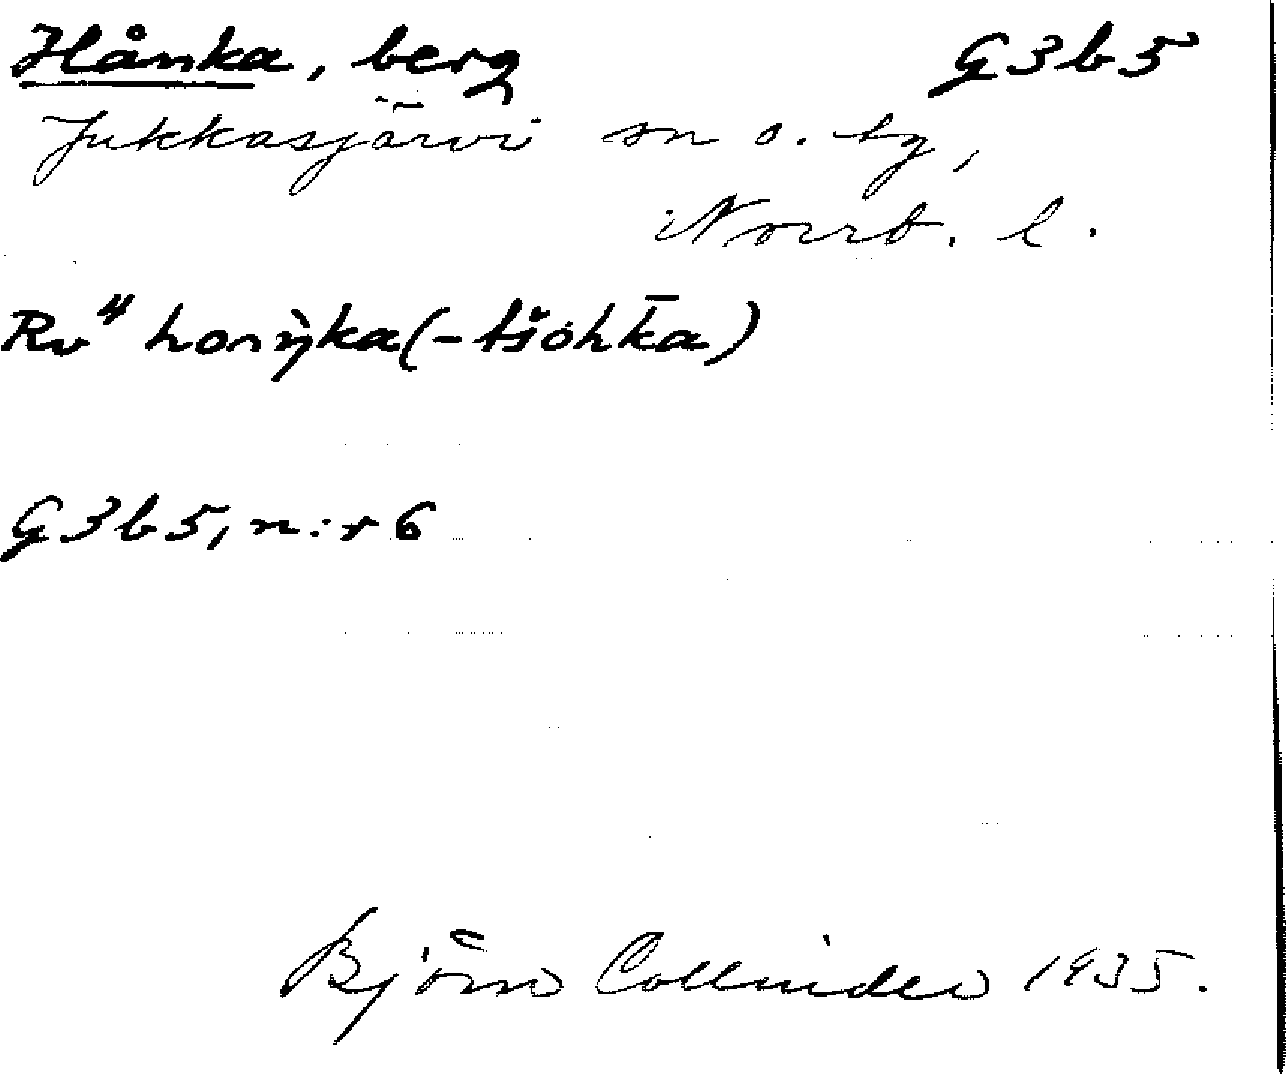 Hånka, berg G3b5
Jukkasjärvi sn o. tg,
Norrb. l.
Rv⁴ hoŋ̀ka(-tšohk̄a)
G3b5, n:r 6
Björn Collinder 1935.